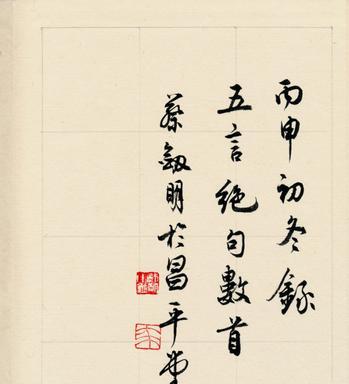 丙申初冬録
五言絶句數首
蔡劔明於昌平堂